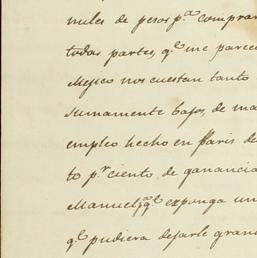 miles de pesos p.ª comprar
todas partes, q.e me parece
Mejico nos cuestan tanto
sumamente bajos, de ma
empleo hecho en Paris de
to p.r ciento de ganancia
Manuel, q.e exponga un
q.e pudiera dejarle gran